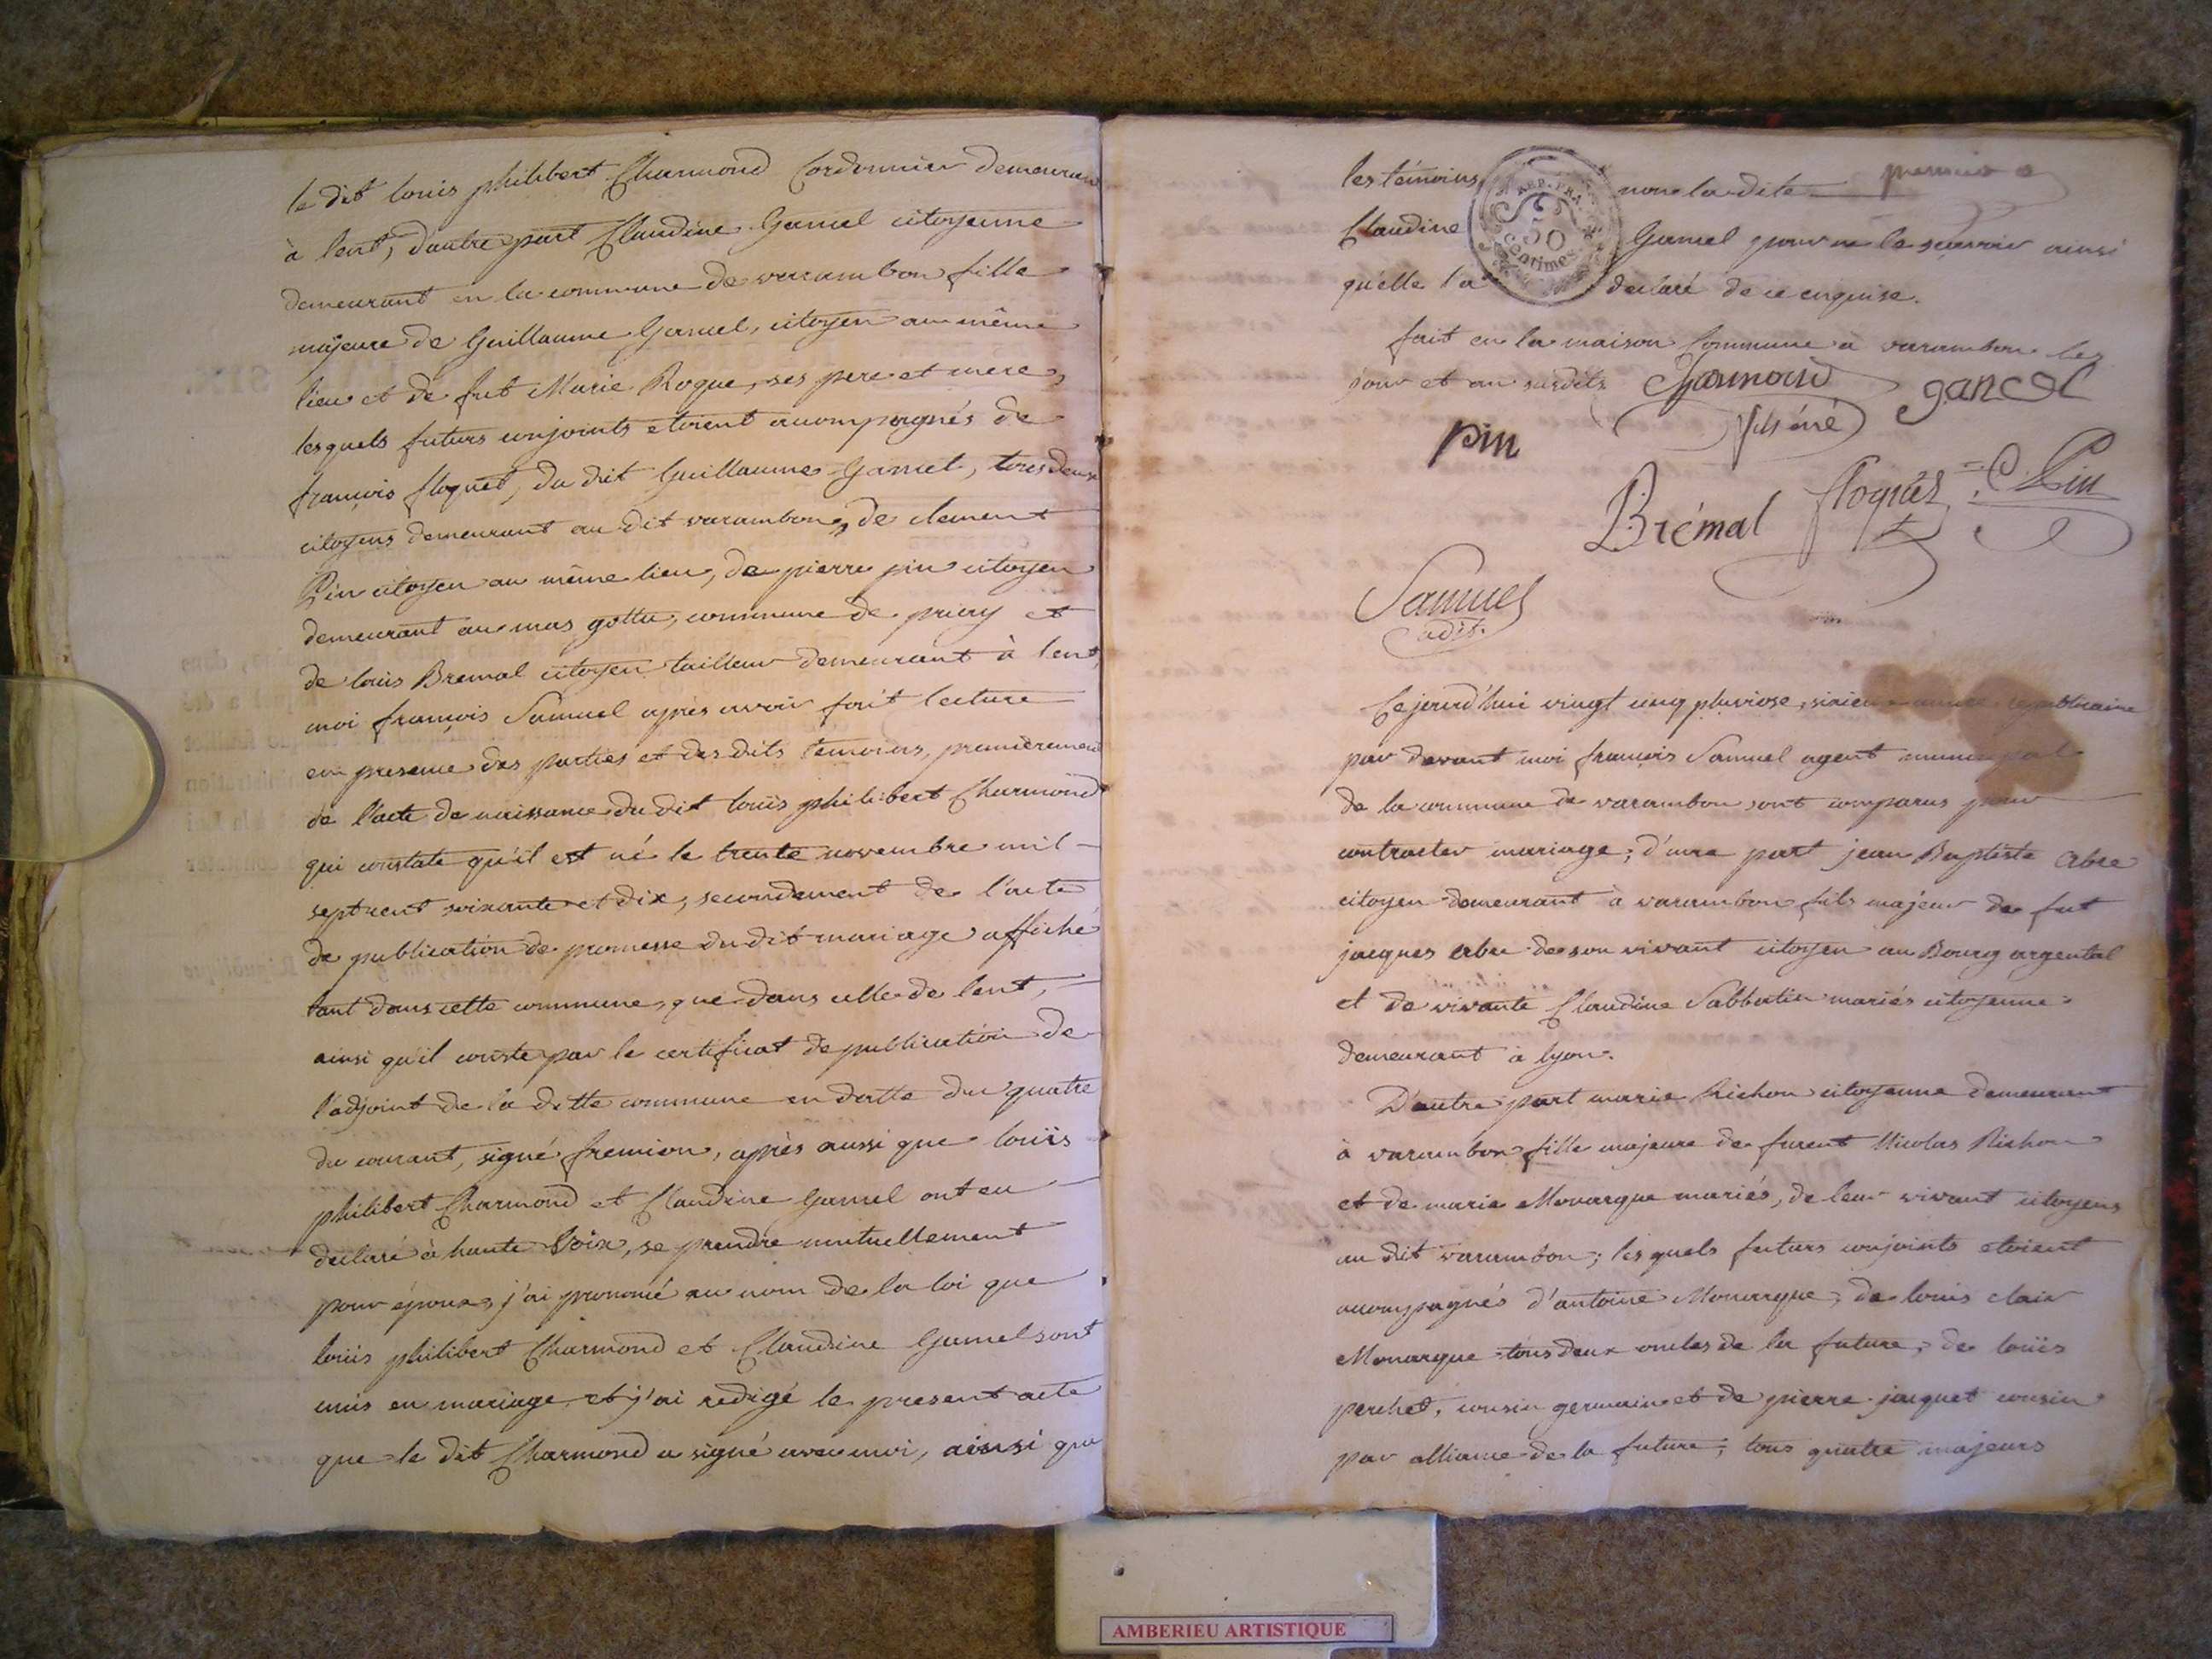 le dit louis philibert Charmond Cordonnier demeurant
à lent, d'autre part Claudine Gancel citoyenne
demeurant en la commune de varambon fille
majeure de Guillaume Gancel, citoyen au même
lieu et de fut Marie Roque, ses pere et mere,
lesquels futurs conjoints etoient accompagnés de
françois floquet, du dit Guillaume Gancel, tous deux
citoyens demeurant au dit varambon, de clement
Pin citoyen au même lieu, de pierre pin citoyen
demeurant au mas gottu, commune de priay et
de louis Bremal citoyen tailleur demeurant à lent,
moi françois Samuel après avoir fait lecture
en presence des parties et des dits temoins, premièrement
de l'acte de naissance du dit louis philibert Charmond
qui constate qu'il est né le trente novembre mil
septcent soixante et dix, secondement de l'acte
de publication de promesse du dit mariage affiché
tant dans cette commune, que dans celle de lent,
ainsi qu'il conste par le certificat de publication de
l'adjoint de la ditte commune en datte du quatre
du courant, signé fremion, après aussi que louis
philibert Charmond et Claudine Gancel ont eu
declaré à haute Voix, se prendre mutuellement
pour époux, j'ai prononcé au nom de la loi que
louis philibert Charmond et Claudine Gancel sont
unis en mariage et j'ai redigé le present acte
que le dit Charmond a signé avec moi, ainsi que
les témoins, non la dite premier
REP. FRA.
50
Centimes
Claudine Gancel pour ne le sçavoir ainsi
qu'elle l'a declaré de ce enquise.
fait en la maison Commune à varambon les
jour et an susdits Charmond gancel
pin fils ainé
Brémal floquet C. Pin
Samuel
adjt.
Cejourd'hui vingt cinq pluviose, sixieme année republicaine
par devant moi françois Samuel agent municipal
de la commune de varambon sont comparus pour
contracter mariage; d'une part jean Baptiste Abre
citoyen demeurant à varambon fils majeur de fut
jacques abre de son vivant citoyen au Bourg argental
et de vivante Claudine Sabbatier mariés citoyenne
demeurant à lyon.
D'autre part marie Richon citoyenne demeurant
à varambon fille majeure de furent Nicolas Richon
et de marie Monarque mariés, de leur vivant citoyens
au dit varambon; lesquels futurs conjoints etoient
accompagnés d'antoine Monarque, de louis clair
Monarque tous deux oncles de la future, de louis
perchet, cousin germain et de pierre jacquet cousin
par alliance de la future, tous quatre majeurs
AMBERIEU ARTISTIQUE